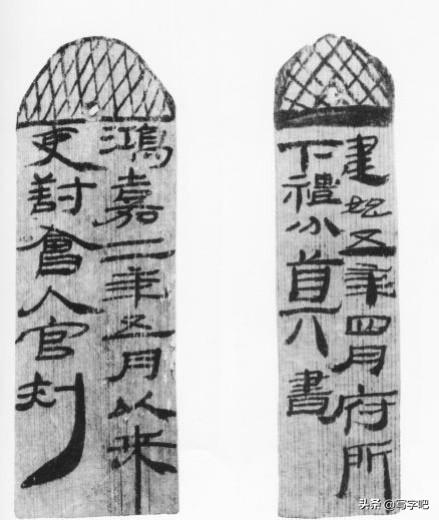 建始五年四月府所
下禮分算書
鴻嘉二年五月以來
吏對會入官刺
头条 @写字吧